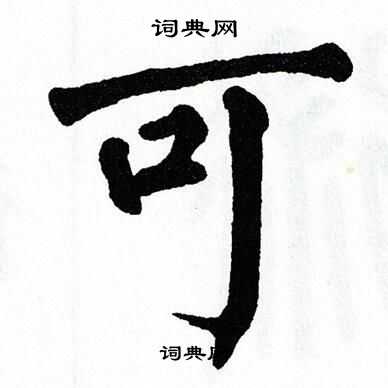 词典网
可
词典